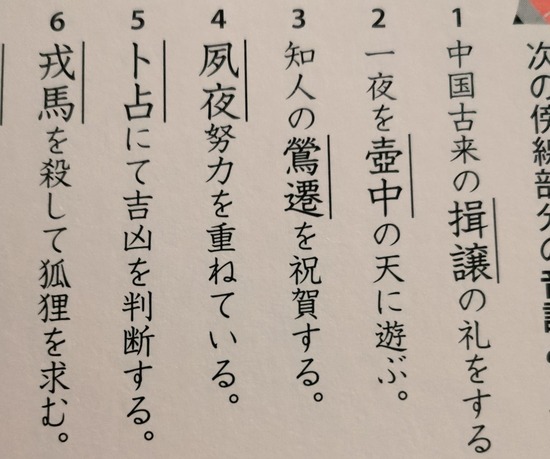 次の傍線部分の音読
1 中国古来の揖譲の礼をする
2 一夜を壺中の天に遊ぶ。
3 知人の鶯遷を祝賀する。
4 夙夜努力を重ねている。
5 卜占にて吉凶を判断する。
6 戎馬を殺して狐狸を求む。